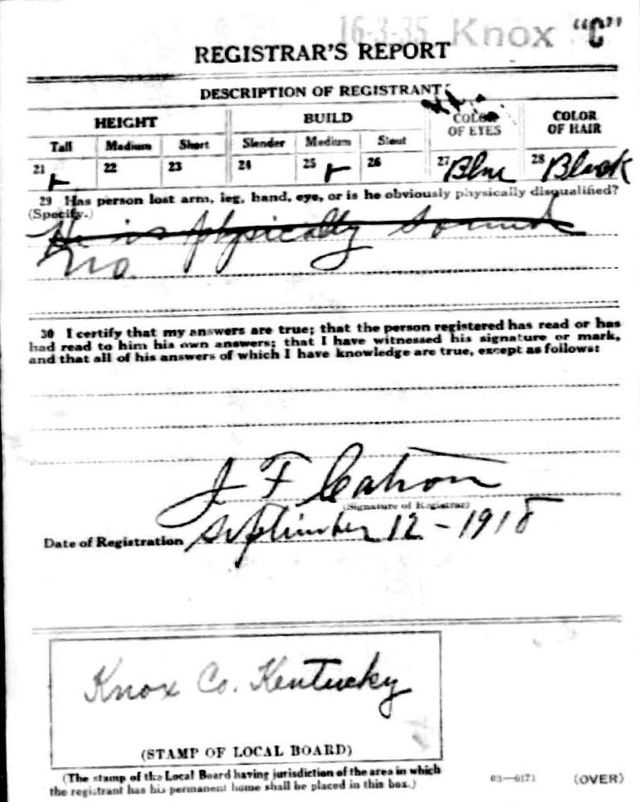 16-3-35 Knox "C"
REGISTRAR'S REPORT
DESCRIPTION OF REGISTRANT
HEIGHT BUILD COLOR OF EYES COLOR OF HAIR
Tall Medium Short Slender Medium Stout
21 22 23 24 25 26 27 Blue 28 Black
29 Has person lost arm, leg, hand, eye, or is he obviously physically disqualified?
(Specify.)
He is physically sound
No
30 I certify that my answers are true; that the person registered has read or has
had read to him his own answers; that I have witnessed his signature or mark,
and that all of his answers of which I have knowledge are true, except as follows:
J F Catron
(Signature of Registrar)
Date of Registration September 12-1918
Knox Co. Kentucky
(STAMP OF LOCAL BOARD)
(The stamp of the Local Board having jurisdiction of the area in which
the registrant has his permanent home shall be placed in this box.)
03-6171 (OVER)